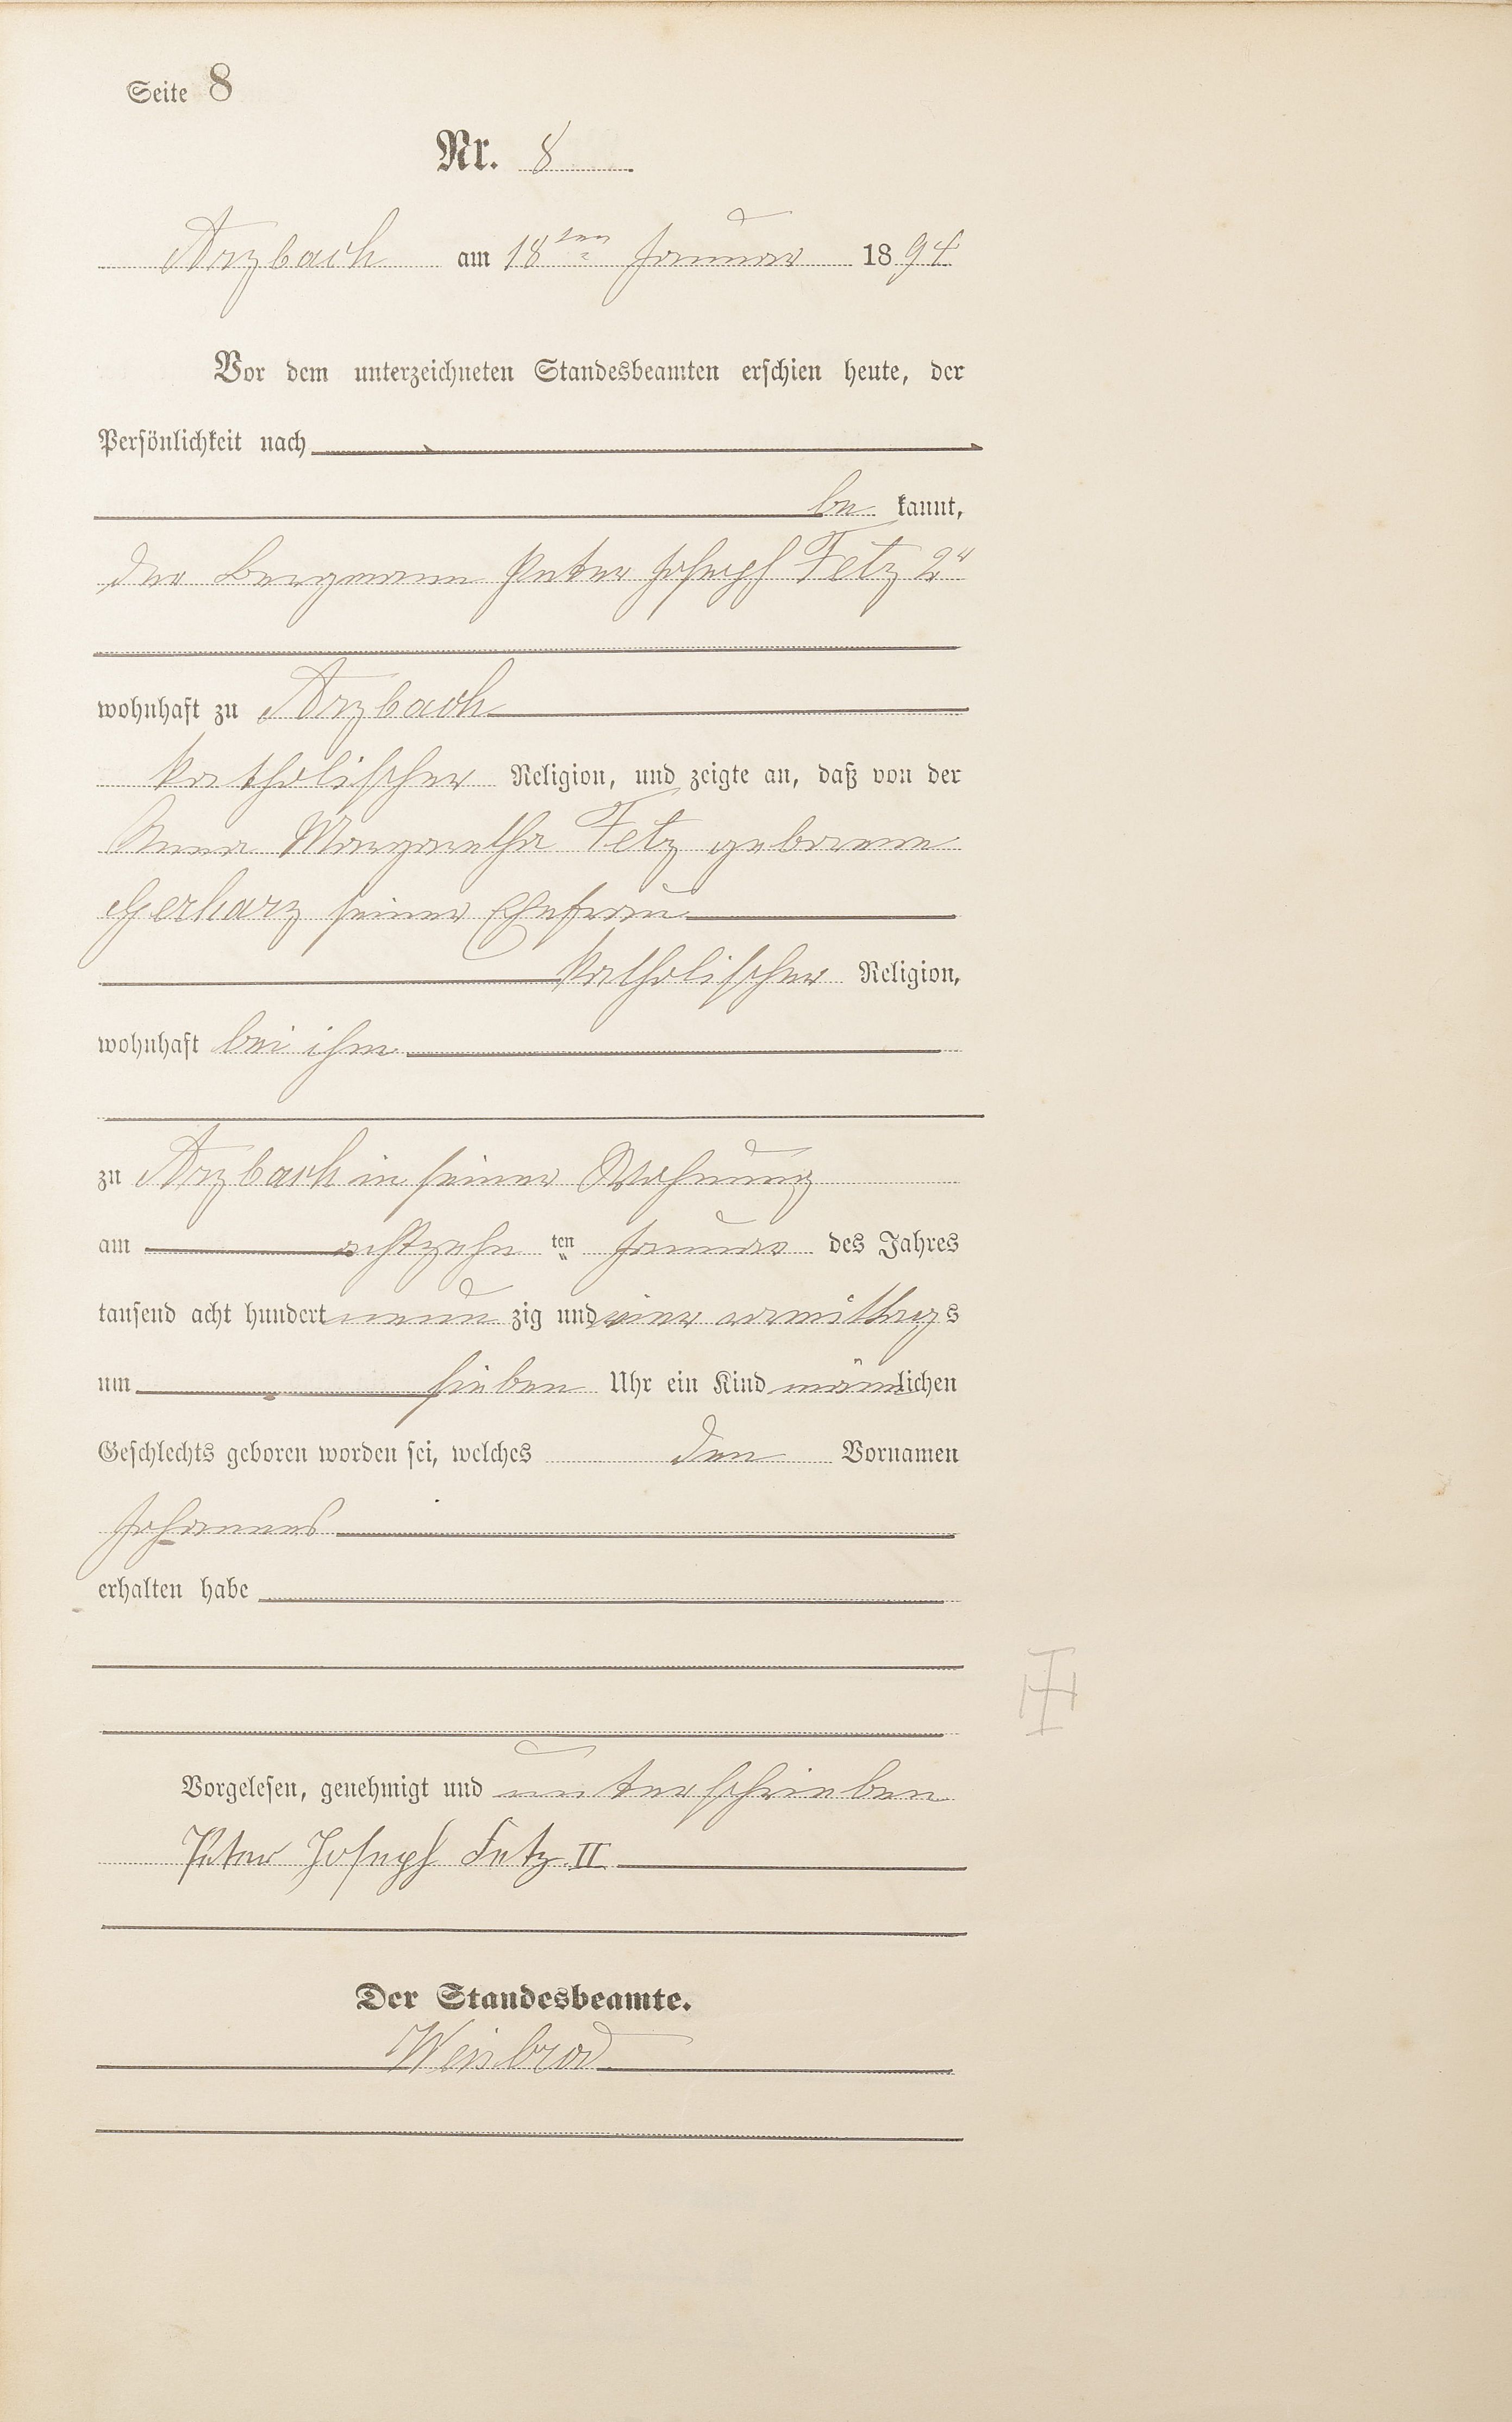 Seite 8
Nr. 8
Arzbach am 18ten Januar 1894
Vor dem unterzeichneten Standesbeamten erschien heute, der
Persönlichkeit nach
be kannt,
der Bergmann Peter Joseph Fetz 2r
wohnhaft zu Arzbach
katholischer Religion, und zeigte an, daß von der
Anna Margaretha Fetz geborene
Gerharz seiner Ehefrau
katholischer Religion,
wohnhaft bei ihm
zu Arzbach in seiner Wohnung
am achtzehn ten Januar des Jahres
tausend acht hundert neun zig und vier vormittags
um sieben Uhr ein Kind männlichen
Geschlechts geboren worden sei, welches den Vornamen
Johannes
erhalten habe
Vorgelesen, genehmigt und unterschrieben
Peter Joseph Fetz II
Der Standesbeamte.
Weisbrod